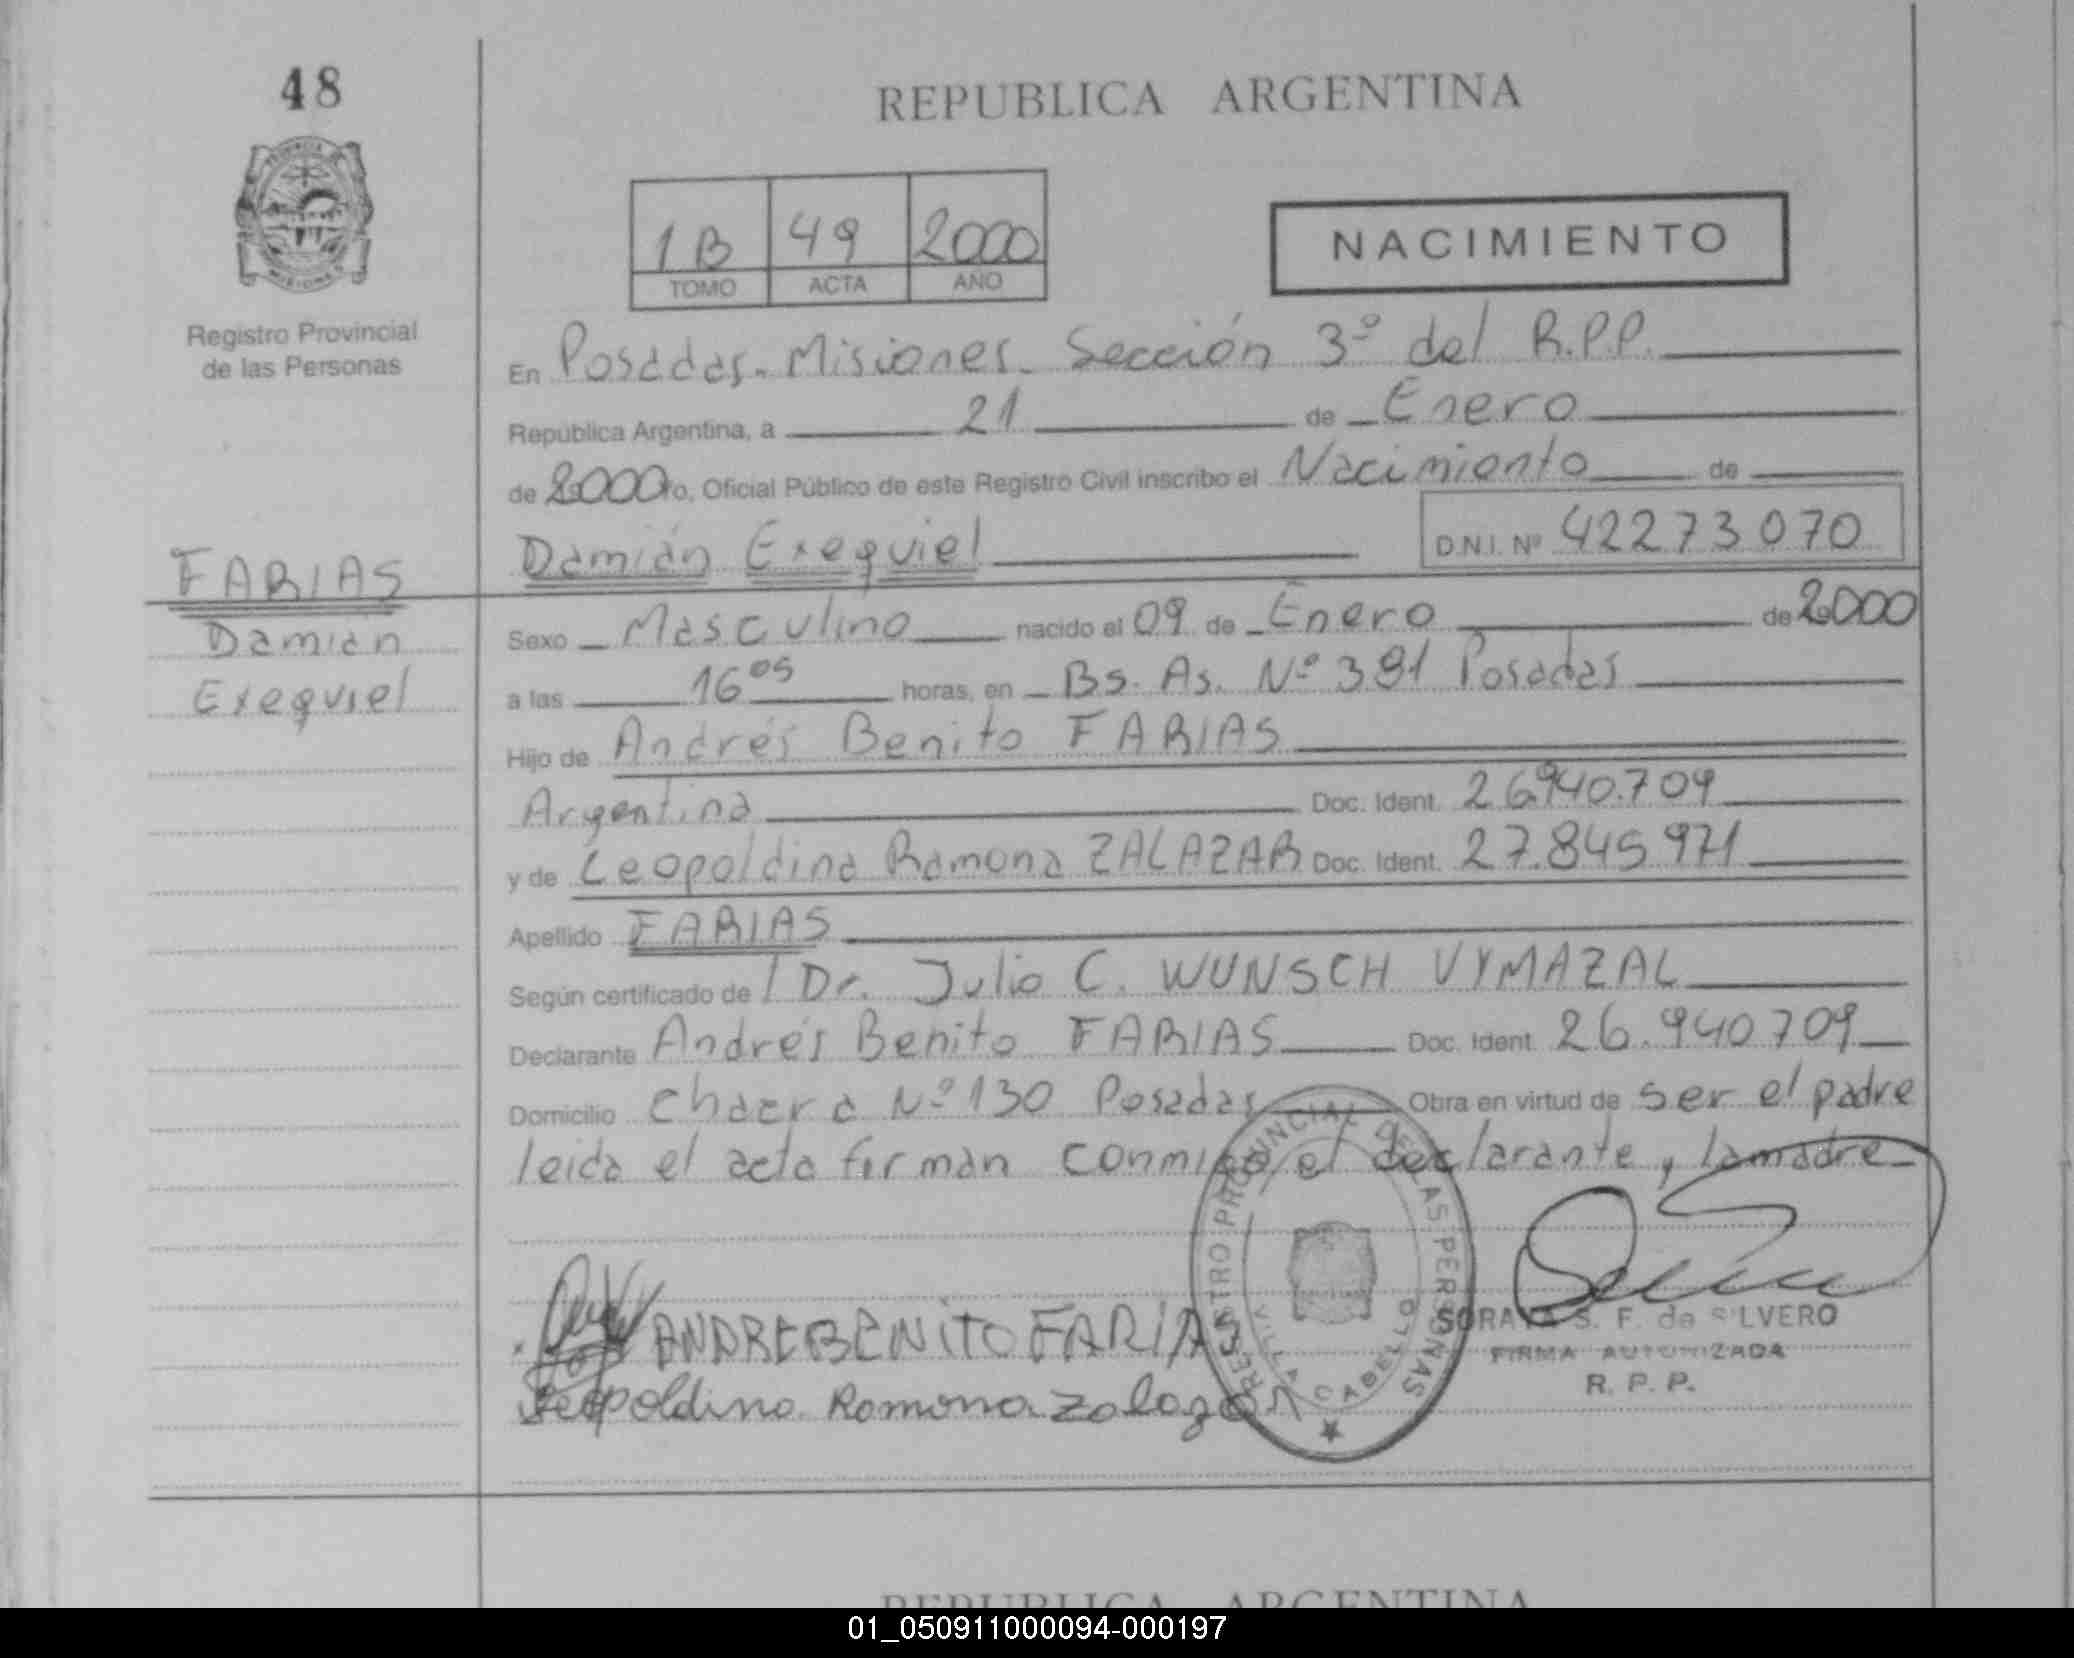 48
REPUBLICA ARGENTINA
1B 49 2000
TOMO ACTA AÑO
NACIMIENTO
Registro Provincial
de las Personas
En Posadas. Misiones. Sección 3º del R.P.P.
República Argentina, a 21 de Enero
de 2.000 Yo, Oficial Público de este Registro Civil inscribo el Nacimiento de
Damián Exequiel D.N.I. Nº 42273070
FARIAS
Damián
Exequiel
Sexo Masculino nacido el 09 de Enero de 2.000
a las 16 05 horas, en Bs. As. Nº 381 Posadas
Hijo de Andrés Benito FARIAS
Argentina Doc. Ident. 26940.709
y de Leopoldina Ramona ZALAZAR Doc. Ident. 27.845.971
Apellido FARIAS
Según certificado de Dr. Julio C. WUNSCH VYMAZAL
Declarante Andrés Benito FARIAS Doc. Ident. 26.940709
Domicilio Chacra Nº 130 Posadas Obra en virtud de ser el padre
leida el acta firman conmigo el declarante, la madre
REGISTRO PROVINCIAL DE LAS PERSONAS
VILLA CABELLO
ANDRE BENITO FARIAS
Leopoldina Ramona Zalazar
SORAYA S. F. de SILVERO
FIRMA AUTORIZADA
R. P. P.
REPUBLICA ARGENTINA
01_050911000094-000197